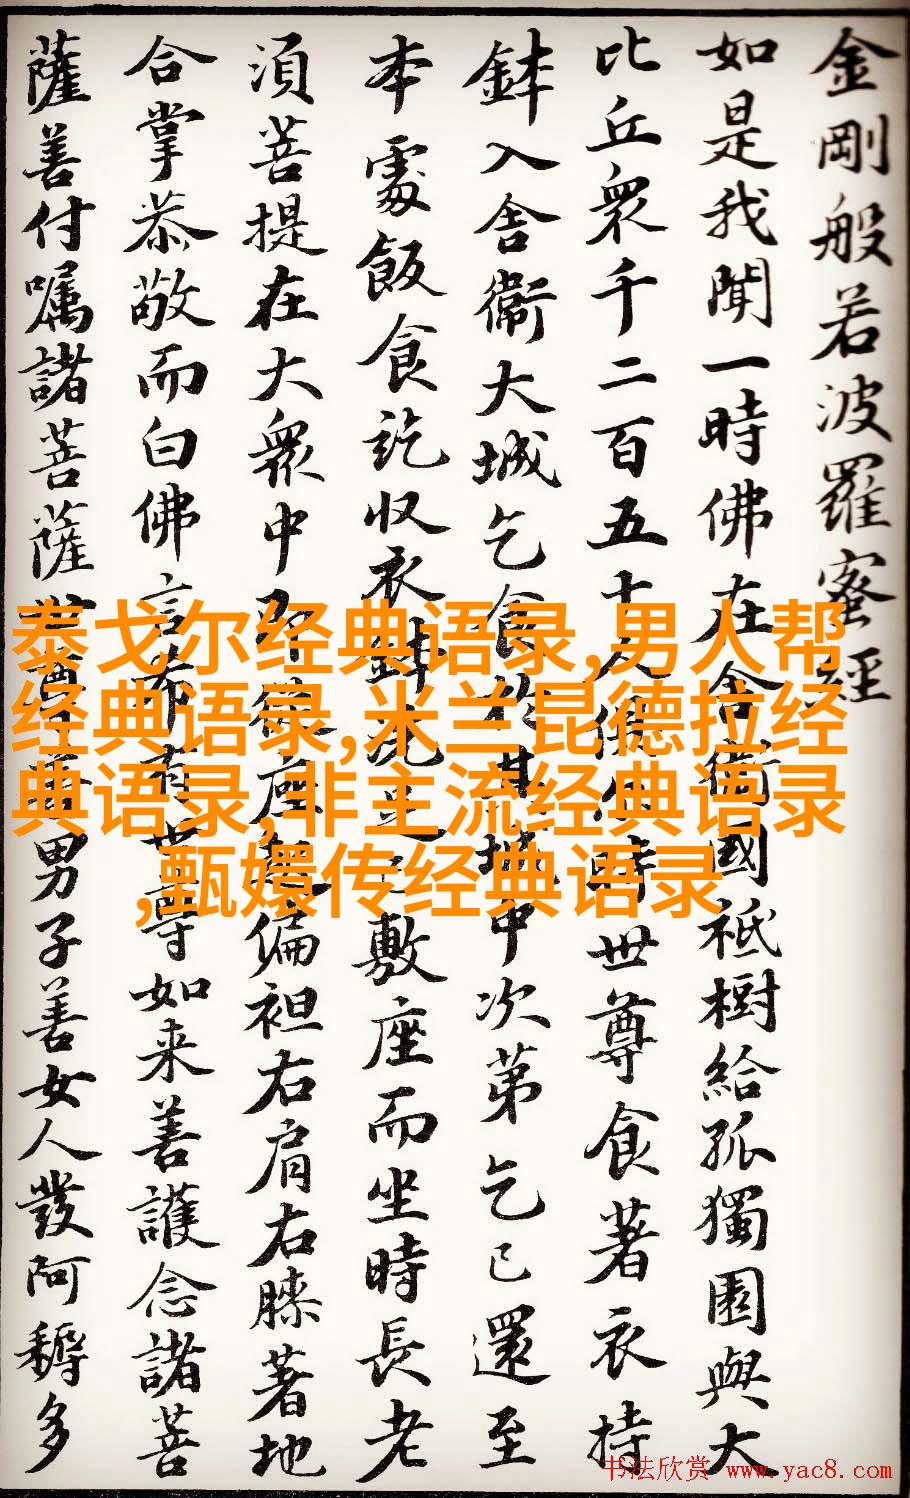 金剛般若波羅蜜經
如是我聞一時佛在舍衛國祇樹給孤獨園與大
比丘衆千二百五十人俱尒時世尊食著衣持
鉢入舍衛大城乞食於其城中次第乞已還至
本處飯食訖收衣鉢洗足已敷座而坐時長老
須菩提在大衆中即從座起偏袒右肩右膝著地
合掌恭敬而白佛言希有世尊如来善護念諸菩
薩善付囑諸菩薩世尊善男子善女人發阿耨多
泰戈尔经典语录,男人帮
经典语录,米兰昆德拉经
典语录,非主流经典语录
,甄嬛传经典语录
书法欣赏 www.yac8.com